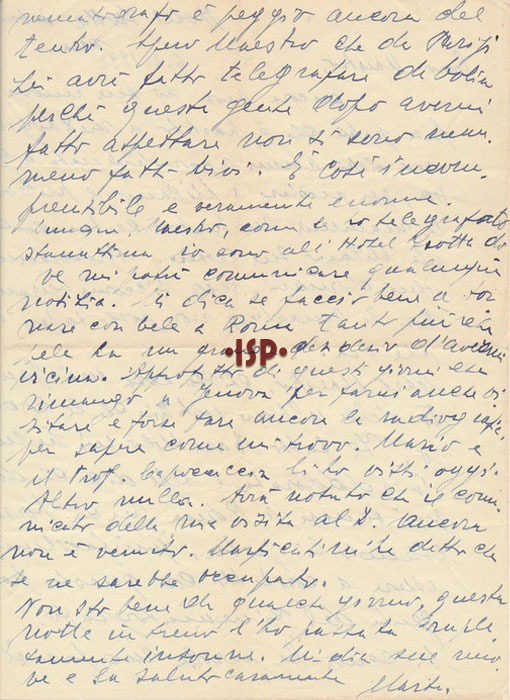 nematografo è peggio ancora del
teatro. Spero Maestro che da Parigi
Lei avrà fatto telegrafare da
perché questa gente dopo avermi
fatto aspettare non si sono nem-
meno fatti vivi. È così incom-
prensibile e veramente enorme.
Dunque, Maestro, come le ho telegrafato
stamattina io sono all'Hotel do-
ve mi potrà comunicare qualunque
notizia. Mi dica se faccio bene a tor-
nare con bebè a Roma tanto più che
bebè ha un grande desiderio d'avermi
vicina. Approfitto di questi giorni che
rimango a Genova per farmi anche vi-
sitare e forse fare ancora la radiografia,
per sapere come mi trovo. Mario e
il Prof. Capocaccia li ho visti oggi.
Altro nulla. Avrà notato che il comu-
nicato della mia visita al D. ancora
non è venuto. Marpicati mi ha detto che
se ne sarebbe occupato.
Non sto bene da qualche giorno, questa
notte in treno l'ho passata comple-
tamente insonne. Mi dia sue nuo-
ve e la saluto caramente
Marta.
·ISP·